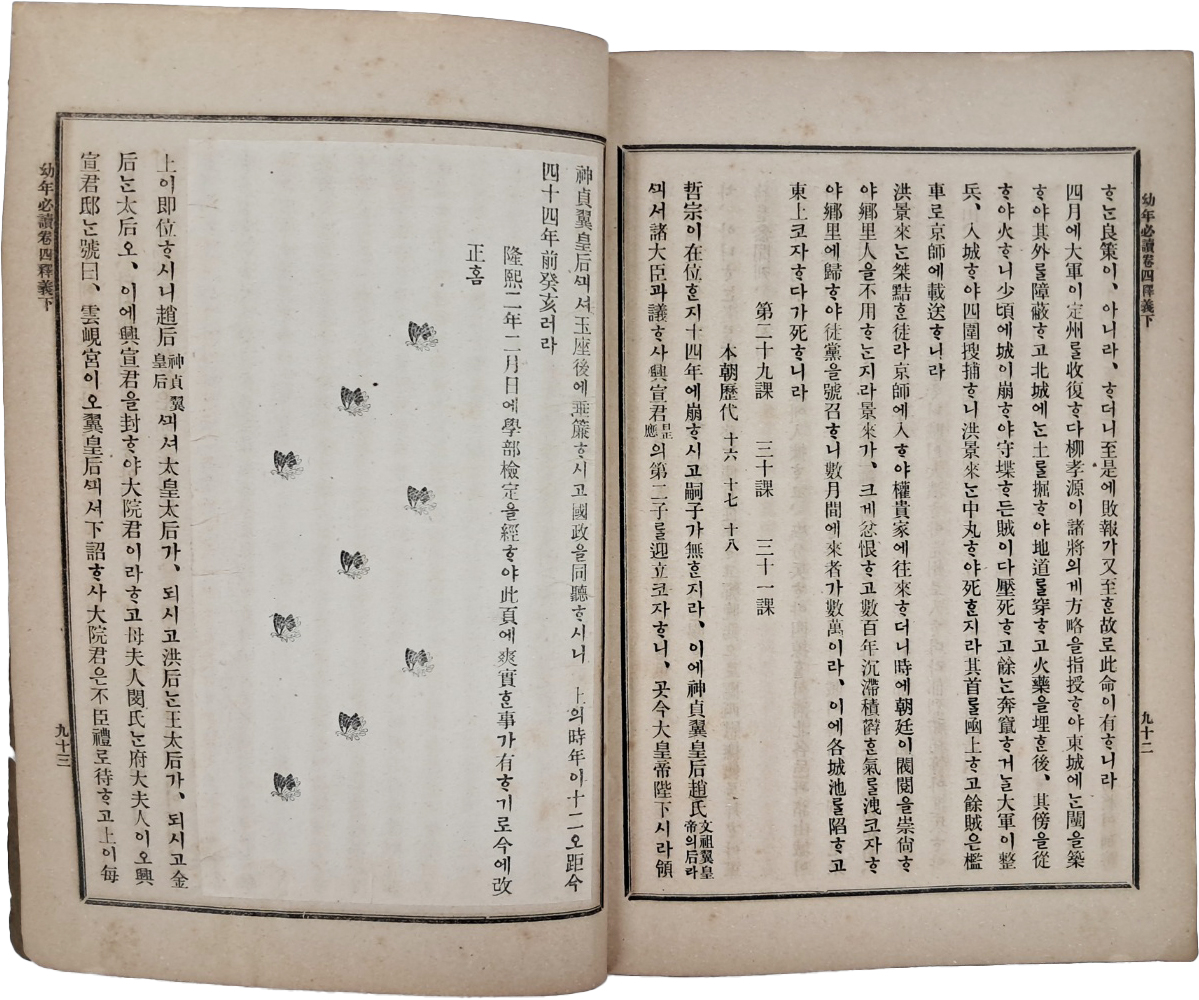 幼年必讀卷四釋義下
九十二
ᄒᆞᄂᆞᆫ良策이、아니라、ᄒᆞ더니至是에敗報가又至ᄒᆞᆫ故로此命이有ᄒᆞ니라
四月에大軍이定州를收復ᄒᆞ다柳孝源이諸將의게方略을指授ᄒᆞ야東城에ᄂᆞᆫ闉을築
ᄒᆞ야其外를障蔽ᄒᆞ고北城에ᄂᆞᆫ土를掘ᄒᆞ야地道를穿ᄒᆞ고火藥을埋ᄒᆞᆫ後、其傍을從
ᄒᆞ야火ᄒᆞ니少頃에城이崩ᄒᆞ야守堞ᄒᆞ든賊이다壓死ᄒᆞ고餘ᄂᆞᆫ奔竄ᄒᆞ거ᄂᆞᆯ大軍이整
兵、入城ᄒᆞ야四圍搜捕ᄒᆞ니洪景來ᄂᆞᆫ中丸ᄒᆞ야死ᄒᆞᆫ지라其首를函上ᄒᆞ고餘賊은檻
車로京師에載送ᄒᆞ니라
洪景來ᄂᆞᆫ桀黠ᄒᆞᆫ徒라京師에入ᄒᆞ야權貴家에往來ᄒᆞ더니時에朝廷이閥閱을崇尙ᄒᆞ
야鄕里人을不用ᄒᆞᄂᆞᆫ지라景來가、크게忿恨ᄒᆞ고數百年沉滯積欝ᄒᆞᆫ氣를洩코자ᄒᆞ
야鄕里에歸ᄒᆞ야徒黨을號召ᄒᆞ니數月間에來者가數萬이라、이에各城池를陷ᄒᆞ고
東上코자ᄒᆞ다가死ᄒᆞ니라
第二十九課　三十課　三十一課
本朝歷代 十六 十七 十八
哲宗이在位ᄒᆞᆫ지十四年에崩ᄒᆞ시고嗣子가無ᄒᆞᆫ지라、이에神貞翼皇后趙氏文祖翼皇帝의后라
ᄭᅴ셔諸大臣과議ᄒᆞ사興宣君昰應의第二子를迎立코자ᄒᆞ니、곳今大皇帝陛下시라領
神貞翼皇后ᄭᅴ셔玉座後에垂簾ᄒᆞ시고國政을同聽ᄒᆞ시니　上의時年이十二오距今
四十四年前癸亥러라
隆熙二年二月日에學部檢定을經ᄒᆞ야此頁에爽實ᄒᆞᆫ事가有ᄒᆞ기로今에改
正홈
上이即位ᄒᆞ시니趙后神貞翼皇后ᄭᅴ셔太皇太后가、되시고洪后ᄂᆞᆫ王太后가、되시고金
后ᄂᆞᆫ太后오、이에興宣君을封ᄒᆞ야大院君이라ᄒᆞ고母夫人閔氏ᄂᆞᆫ府大夫人이오興
宣君邸ᄂᆞᆫ號曰、雲峴宮이오翼皇后ᄭᅴ셔下詔ᄒᆞ사大院君은不臣禮로待ᄒᆞ고上이每
幼年必讀卷四釋義下
九十三